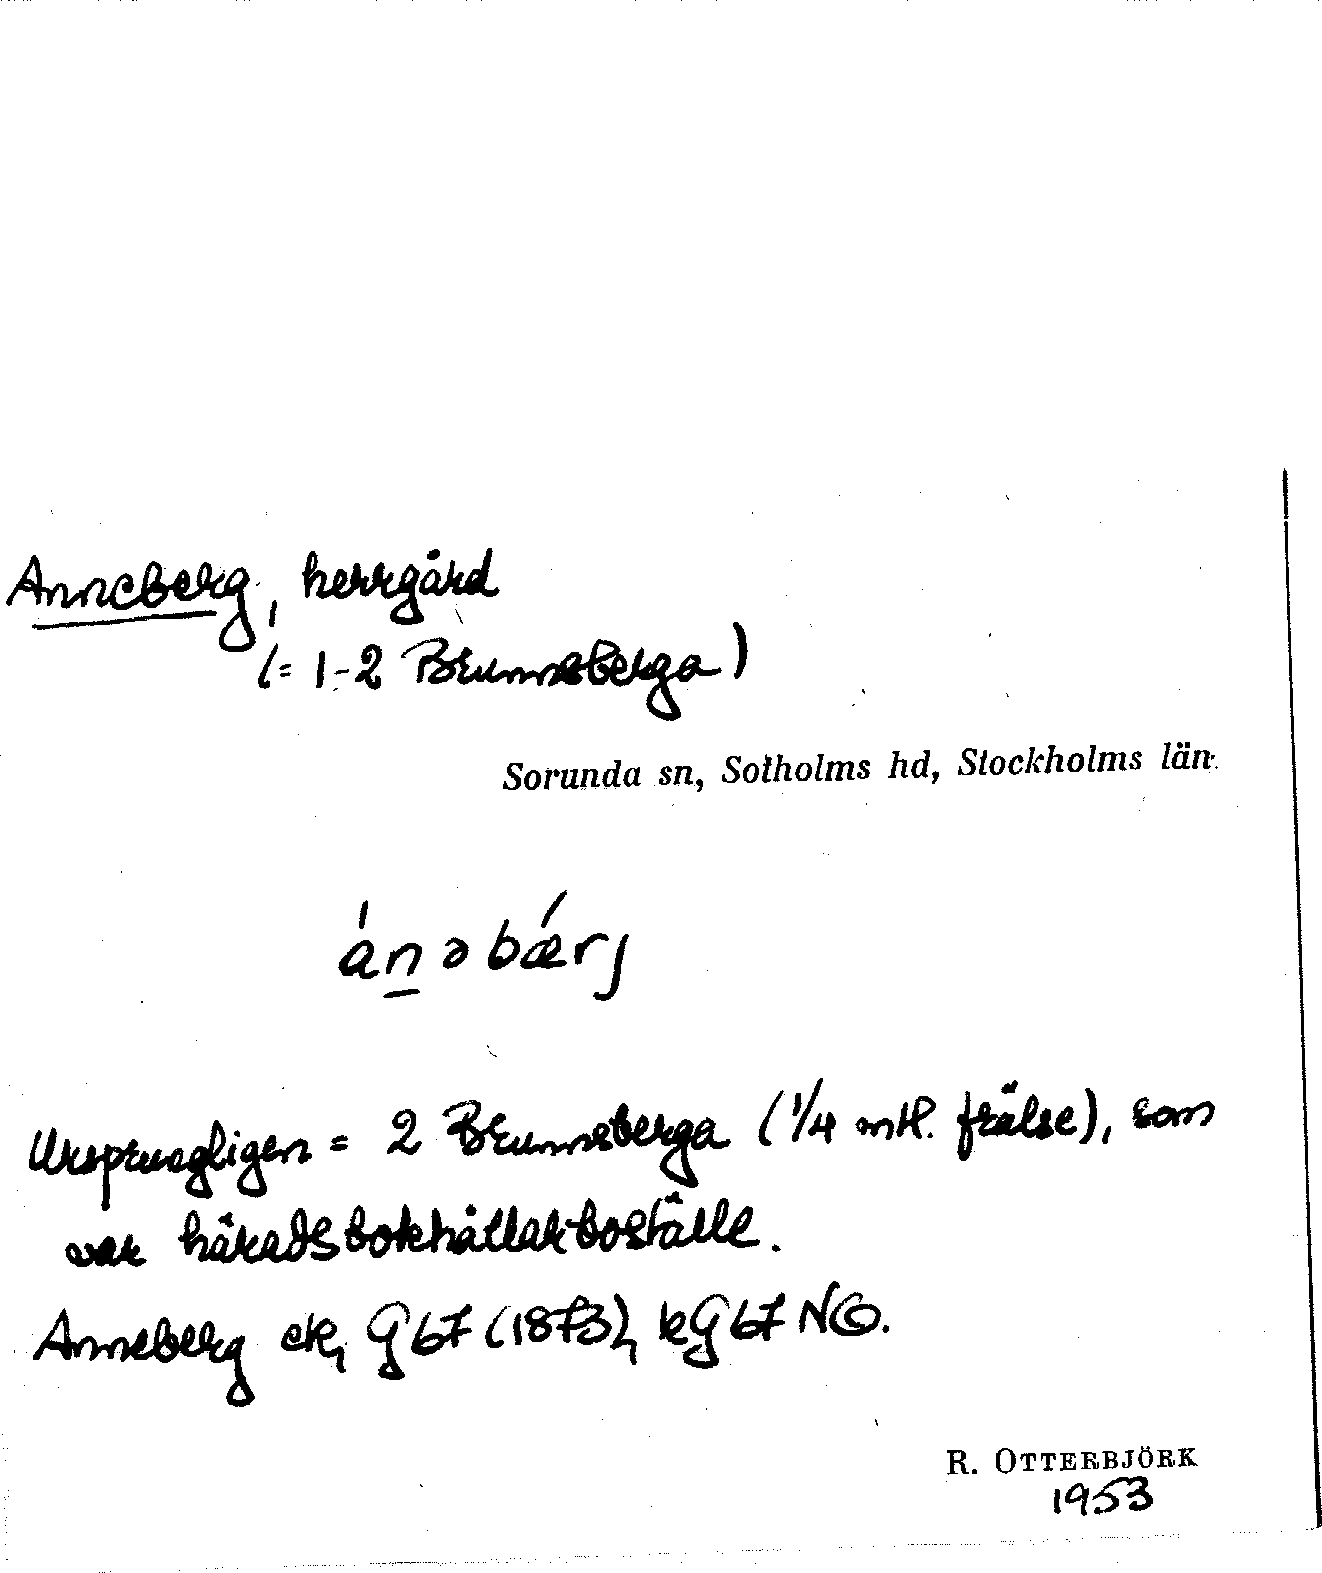 Anneberg, herrgård
(= 1-2 Brunneberga)
Sorunda sn, Sotholms hd, Stockholms län.
ánəbǽrj
Ursprungligen = 2 Brunneberga (1/4 mtl. frälse), som
var häradsbokhållarboställe.
Anneberg ek, G67 (1873), kG67 NO.
R. OTTERBJÖRK
1953